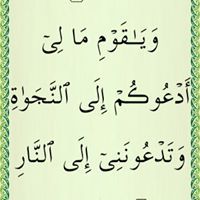 وَيَـٰقَوْمِ مَا لِىٓ
أَدْعُوكُمْ إِلَى ٱلنَّجَوٰةِ
وَتَدْعُونَنِىٓ إِلَى ٱلنَّارِ